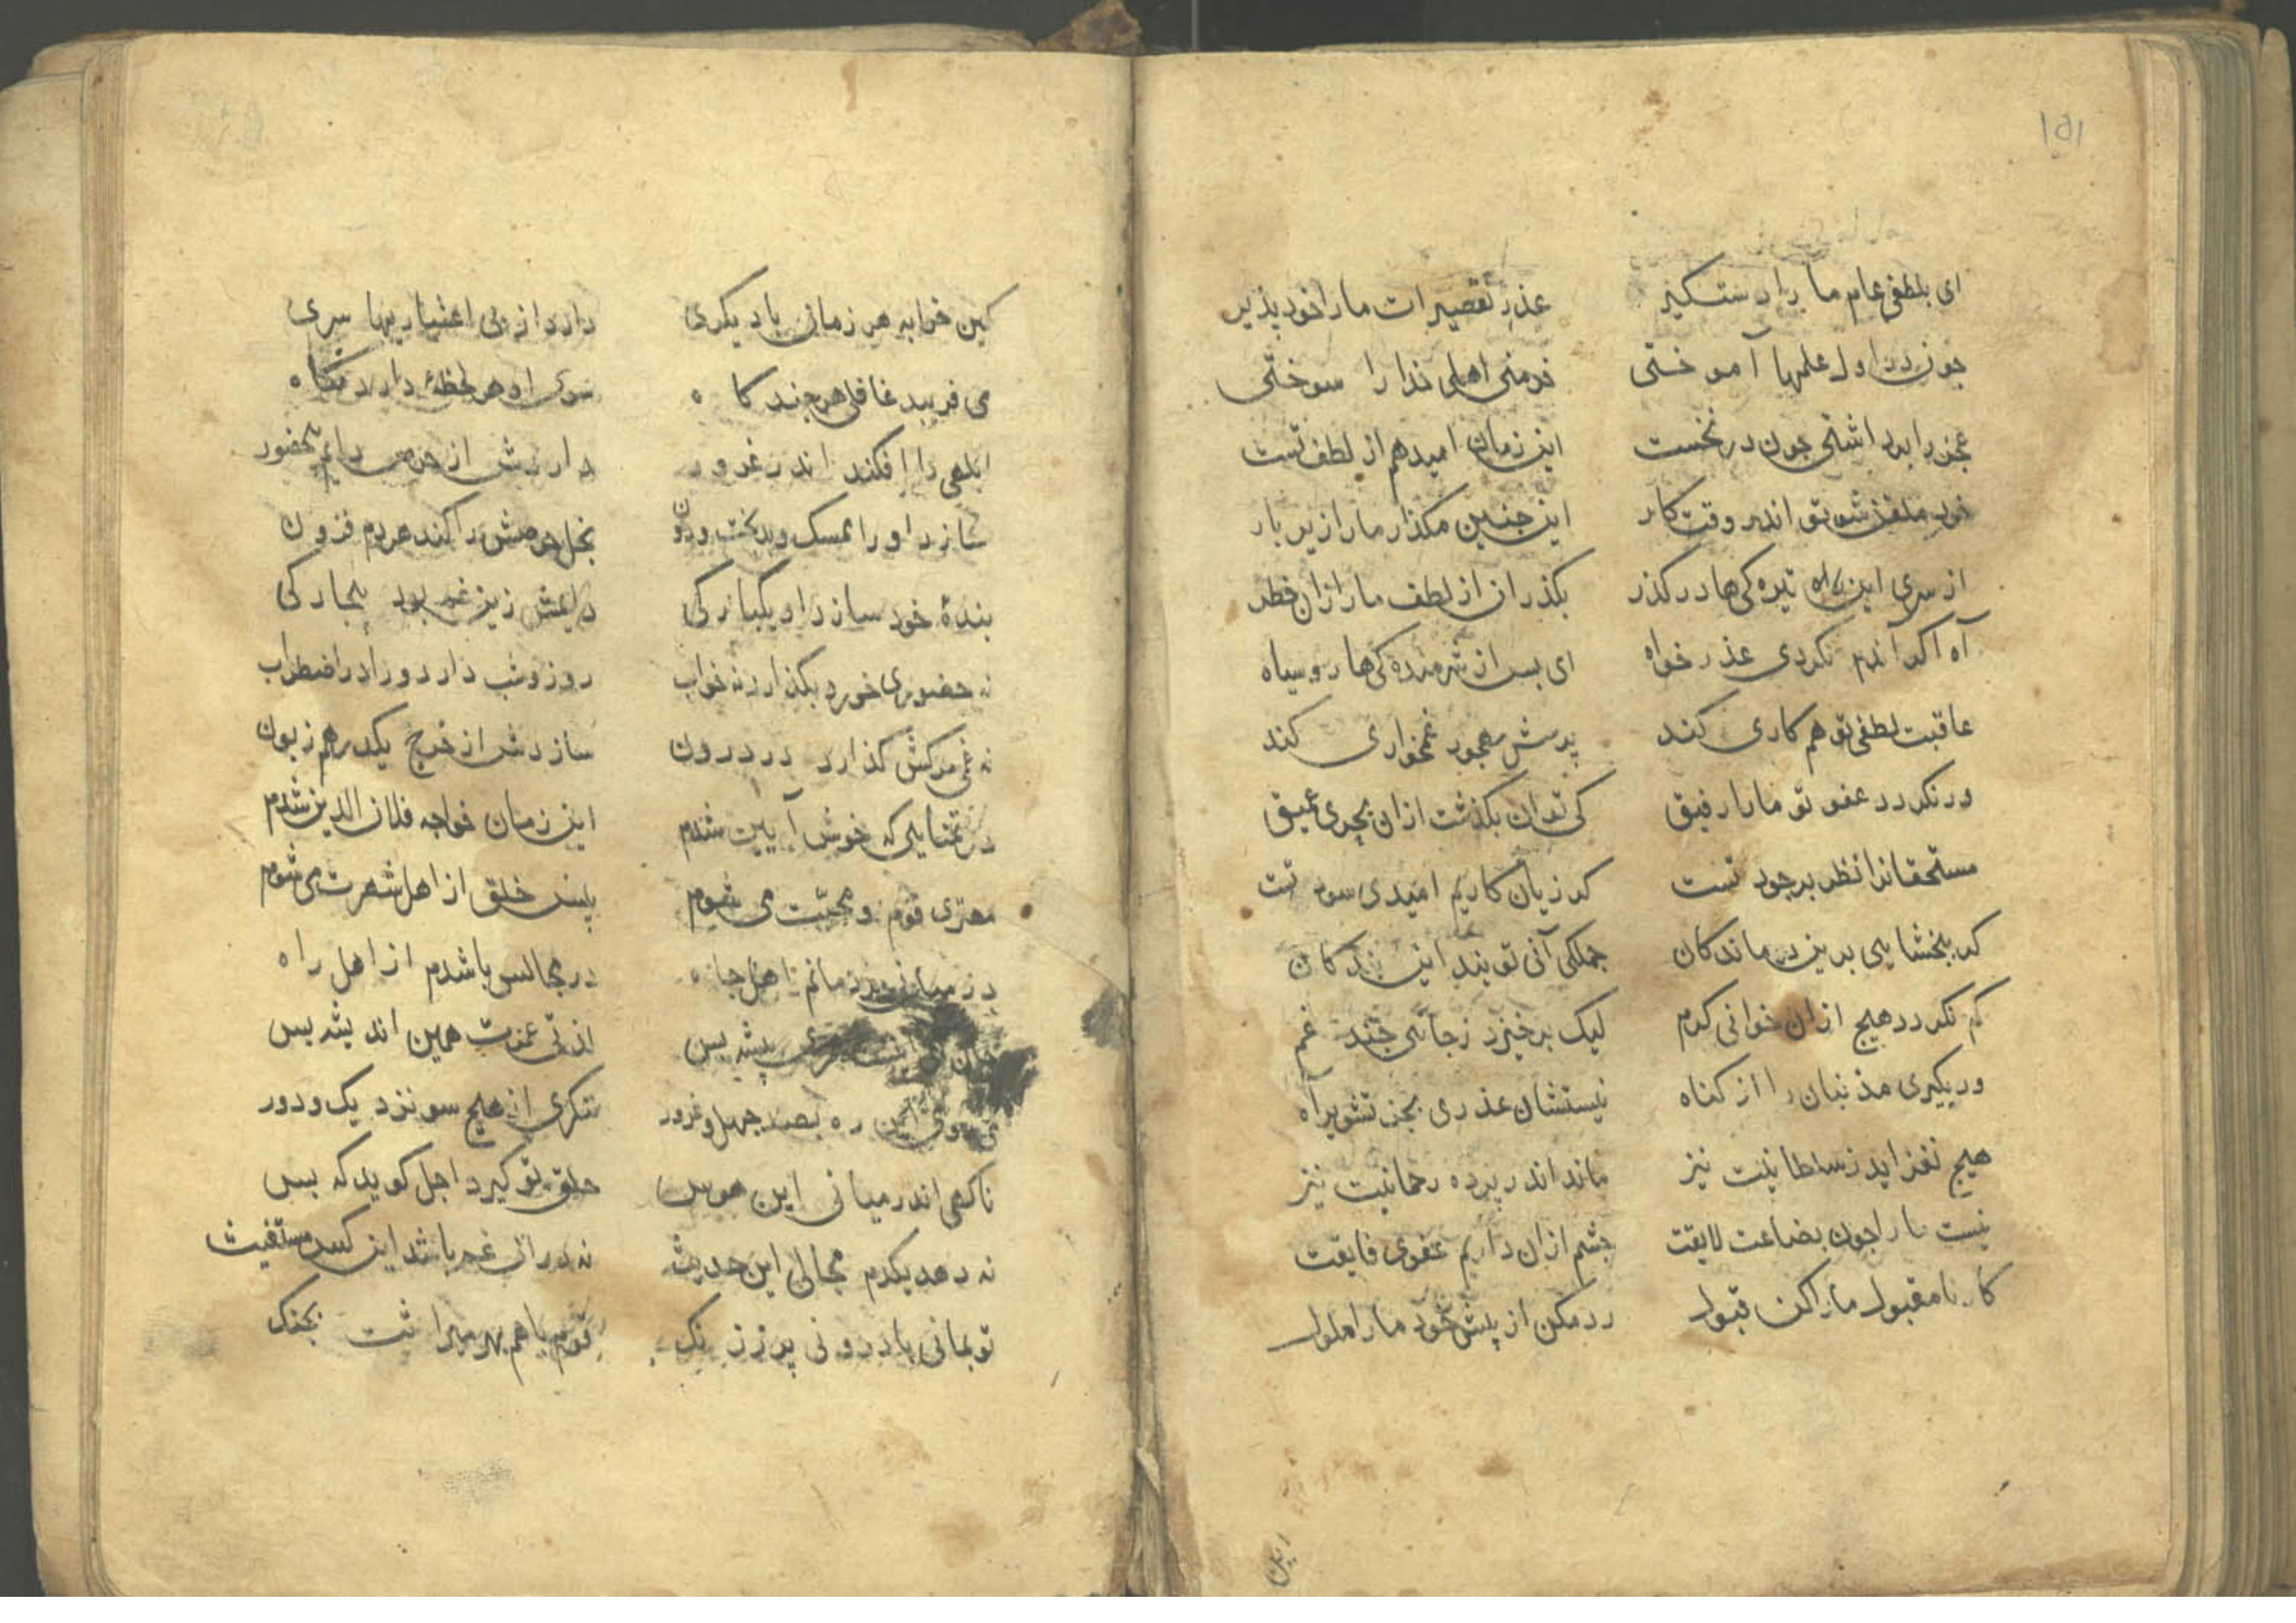 ۱۵۱
ای بلطفی عام ما را دستکیر عذر تقصیرات ما را خود پذیر
چون در اول علمها آموختی خرمنی اهلی ندا را سوختی
عجز را برداشتی چون در نخست این زمان امید هم از لطف تست
خود ملغز شو تو اندر وقت کار این چنین مکذار ما را زیر بار
از سری این راه تیره کی ها در کذر بکذران از لطف ما را زان خطر
آه اکر آندم نکردی عذر خواه ای بس از شرمنده کی ها رو سیاه
عاقبت لطفی تو هم کاری کند پرسش مهجور غمخواری کند
ور نکردد عفو تو ما را رفیق کی توان بکذشت ازان بحری عمیق
مستحقانرا نظر بر جود تست کر زیان کاریم امیدی سود تست
کر ببخشایی برین درماندکان جملکی آنی تویند این بندکان
کم نکردد هیچ ازان خوانی کرم لیک برخیزد ز جانی چند غم
ور بکیری مذنبان را از کناه نیستشان عذری بجز تشویر آه
هیچ نفزاید ز سلطانیت نیز ماند اندر پرده رحمانیت نیز
نیست ما را چون بضاعت لایقت چشم ازان داریم عفوی فایقت
کار نامقبول ما را کن قبول رد مکن از پیش خود ما را ملول
این
کین خرابه هر زمان با دیکری دارد از بی اعتباریها سری
می فریبد غافلی هر چند کاه سوی او هر لحظه دارد نکاه
ابلهی را افکند اندر غرور داردش از حرص دایم بی حضور
سازد او را ممسک و بدبخت و دون بخل و حرصش را کند هردم فزون
بندهٔ خود سازد او یکبارکی دایمش زیر غم بود بیچارکی
نه حضوری خورد بکذارد نه خواب روز و شب دارد ورا در اضطراب
نه غمی مرکش کذارد در درون سازدش از خرج یکدرهم زبون
در تمنایی که خوش آیین شدم این زمان خواجه فلان الدین شدم
مهتری قوم و محبت می شوم پیش خلق از اهل شهرت می شوم
در میانی اهل جاه در مجالس باشدم از اهل راه
پیشه بس از پی عزت همین اندیشه بس
ره بصد جهل و غرور ننکری از هیچ سو نزدیک و دور
ناکهی اندر میانی این هوس حلق تو کیرد اجل کوید که بس
نه دهد یکدم مجالی این حدیث نه دران غم باشد این کس مستغیث
تو بمانی با درونی پر ز زنک قوم با هم بهر میراثت بجنک